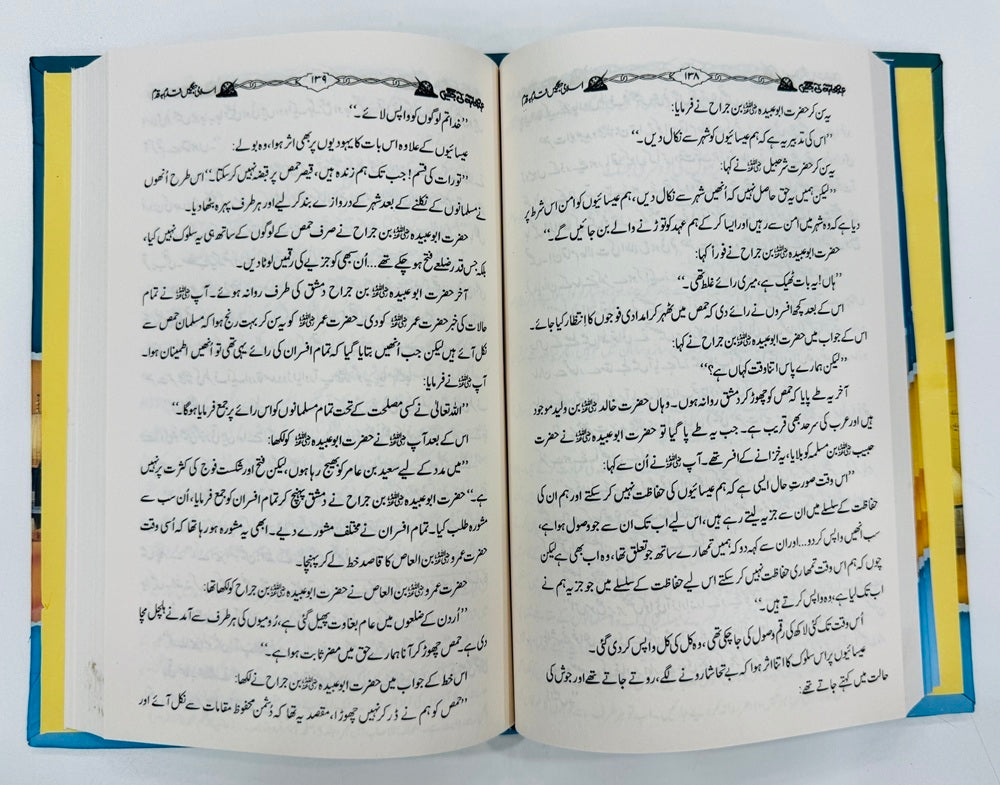 ۱۳۸
یہ سن کر حضرت ابوعبیدہ ؓ بن جراح نے فرمایا:
’’اس کی تدبیر یہ ہے کہ ہم عیسائیوں کو شہر سے نکال دیں۔‘‘
یہ سن کر حضرت شرحبیل ؓ نے کہا:
’’لیکن ہمیں یہ حق حاصل نہیں کہ انھیں شہر سے نکال دیں، ہم عیسائیوں کو امن اس شرط پر
دیا ہے کہ وہ شہر میں امن سے رہیں اور ایسا کر کے ہم عہد کو توڑنے والے بن جائیں گے۔‘‘
حضرت ابوعبیدہ ؓ بن جراح نے فوراً کہا:
’’ہاں! یہ بات ٹھیک ہے، میری رائے غلط تھی۔‘‘
اس کے بعد کچھ افسروں نے رائے دی کہ حمص میں ٹھہر کر امدادی فوجوں کا انتظار کیا جائے۔
اس کے جواب میں حضرت ابوعبیدہ ؓ بن جراح نے کہا:
’’لیکن ہمارے پاس اتنا وقت کہاں ہے؟‘‘
آخر یہ طے پایا کہ حمص کو چھوڑ کر دمشق روانہ ہوں۔ وہاں حضرت خالد ؓ بن ولید موجود
ہیں اور عرب کی سرحد بھی قریب ہے۔ جب یہ طے پا گیا تو حضرت ابوعبیدہ ؓ نے حضرت
حبیب ؓ بن مسلمہ کو بلایا، یہ خزانے کے افسر تھے۔ آپ ؓ نے اُن سے کہا:
’’اس وقت صورتِ حال ایسی ہے کہ ہم عیسائیوں کی حفاظت نہیں کر سکتے اور ہم ان کی
حفاظت کے سلسلے میں ان سے جزیہ لیتے رہے ہیں، اس لیے اب تک ان سے جو وصول ہوا ہے،
سب انھیں واپس کر دو... اور ان سے کہہ دو کہ ہمیں تمھارے ساتھ جو تعلق تھا، وہ اب بھی ہے لیکن
چوں کہ ہم اس وقت تمھاری حفاظت نہیں کر سکتے اس لیے حفاظت کے سلسلے میں جو جزیہ ہم نے
اب تک لیا ہے، وہ واپس کرتے ہیں۔‘‘
اُس وقت تک کئی لاکھ کی رقم وصول کی جا چکی تھی، وہ کل کی کل واپس کر دی گئی۔
عیسائیوں پر اس سلوک کا اتنا اثر ہوا کہ بے تحاشا رونے لگے، روتے جاتے تھے اور جوش کی
حالت میں کہتے جاتے تھے:
اسلامی جنگیں قدم بہ قدم ۱۳۹
’’خدا تم لوگوں کو واپس لائے۔‘‘
عیسائیوں کے علاوہ اس بات کا یہودیوں پر بھی اثر ہوا، وہ بولے:
’’تورات کی قسم! جب تک ہم زندہ ہیں، قیصر حمص پر قبضہ نہیں کر سکتا۔‘‘ اس طرح اُنھوں
نے مسلمانوں کے نکلنے کے بعد شہر کے دروازے بند کر لیے اور ہر طرف پہرہ بٹھا دیا۔
حضرت ابوعبیدہ ؓ بن جراح نے صرف حمص کے لوگوں کے ساتھ ہی یہ سلوک نہیں کیا،
بلکہ جس قدر ضلعے فتح ہو چکے تھے... اُن سبھی کو جزیے کی رقمیں لوٹا دیں۔
آخر حضرت ابوعبیدہ ؓ بن جراح دمشق کی طرف روانہ ہوئے۔ آپ ؓ نے تمام
حالات کی خبر حضرت عمر ؓ کو دی۔ حضرت عمر ؓ کو یہ سن کر بہت رنج ہوا کہ مسلمان حمص سے
نکل آئے ہیں لیکن جب اُنھیں بتایا گیا کہ تمام افسران کی رائے یہی تھی تو اُنھیں اطمینان ہوا۔
آپ ؓ نے فرمایا:
’’اللہ تعالیٰ نے کسی مصلحت کے تحت تمام مسلمانوں کو اس رائے پر جمع فرمایا ہوگا۔‘‘
اس کے بعد آپ ؓ نے حضرت ابوعبیدہ ؓ کو لکھا:
’’میں مدد کے لیے سعید بن عامر کو بھیج رہا ہوں، لیکن فتح اور شکست فوج کی کثرت پر نہیں
ہے۔‘‘ حضرت ابوعبیدہ ؓ بن جراح نے دمشق پہنچ کر تمام افسران کو جمع فرمایا، اُن سب سے
مشورہ طلب کیا۔ تمام افسران نے مختلف مشورے دیے۔ ابھی یہ مشورہ ہو رہا تھا کہ اُسی وقت
حضرت عمرو ؓ بن العاص کا قاصد خط لے کر پہنچا۔
حضرت عمرو ؓ بن العاص نے حضرت ابوعبیدہ ؓ بن جراح کو لکھا تھا:
’’اُردن کے ضلعوں میں عام بغاوت پھیل گئی ہے، رُومیوں کی ہر طرف سے آمد نے ہلچل مچا
دی ہے۔ حمص چھوڑ کر آنا ہمارے حق میں مضر ثابت ہوا ہے۔‘‘
اس خط کے جواب میں حضرت ابوعبیدہ ؓ بن جراح نے لکھا:
’’حمص کو ہم نے ڈر کر نہیں چھوڑا، مقصد یہ تھا کہ دُشمن محفوظ مقامات سے نکل آئے اور